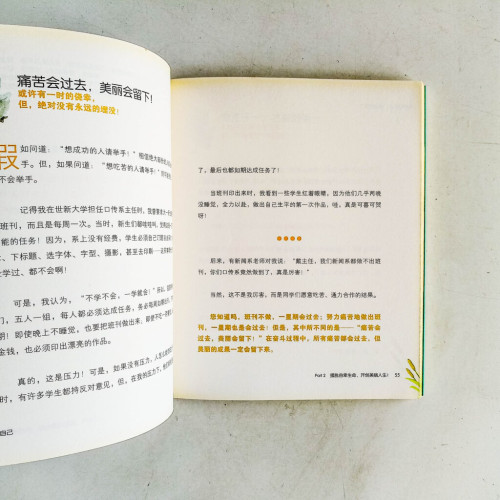 痛苦会过去，美丽会留下！
或许有一时的侥幸，
但，绝对没有永远的埋没！
如问道：“想成功的人请举手！”相信绝大
手。但，如果问道：“想吃苦的人请举手！”
不会举手。
记得我在世新大学担任口传系主任时，我要
班刊，而且是每周一次。当时，新生们都哇哇叫，
能的任务！因为，系上没有经费，学生必须自己
、下标题、选字体、字型、摄影，甚至去印刷
学过、都不会啊！
可是，我认为，“不学不会，一学就会！”
们，五人一组，每人都必须达成任务，务必
期！即使晚上不睡觉，也要把班刊做出来；即使
金钱，也必须印出漂亮的作品。
真的，这是压力！可是，如果没有压力，人
时，有许多学生都持反对意见，但，在我的压力下，
自己
了，最后也都如期达成任务了！
当班刊印出来时，我看到一些学生红着眼睛，因为他们几乎两晚
没睡觉，全力以赴，做出自己生平的第一次作品，哇，真是可喜可贺
呀！
后来，有新闻系老师对我说：“戴主任，我们新闻系都做不出班
刊，你们口传系竟然做到了，真是厉害！”
当然，这不是我厉害，而是同学们愿意吃苦、通力合作的结果。
您知道吗，班刊不做，一星期会过去；努力痛苦地做出班
刊，一星期也是会过去！但是，其中所不同的是——“痛苦会
过去，美丽会留下！”在奋斗过程中，所有痛苦都会过去，但
美丽的成果一定会留下来。
Part 2
55